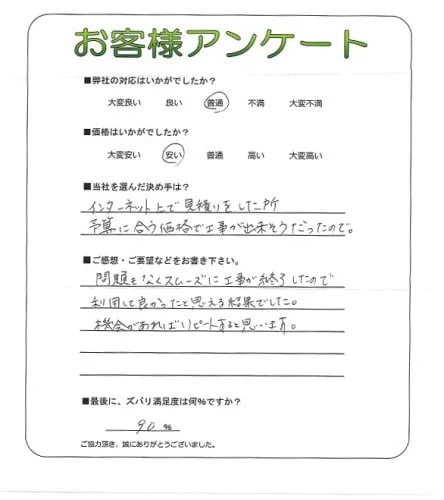 お客様アンケート
■弊社の対応はいかがでしたか?
大変良い 良い 普通 不満 大変不満
■価格はいかがでしたか?
大変安い 安い 普通 高い 大変高い
■当社を選んだ決め手は?
インターネット上で見積りをした所
予算に合う価格で工事が出来そうだったので。
■ご感想・ご要望などをお書き下さい。
問題もなくスムーズに工事が終了したので
利用して良かったと思える結果でした。
機会があればリピートすると思います。
■最後に、ズバリ満足度は何%ですか?
90 %
ご協力頂き、誠にありがとうございました。